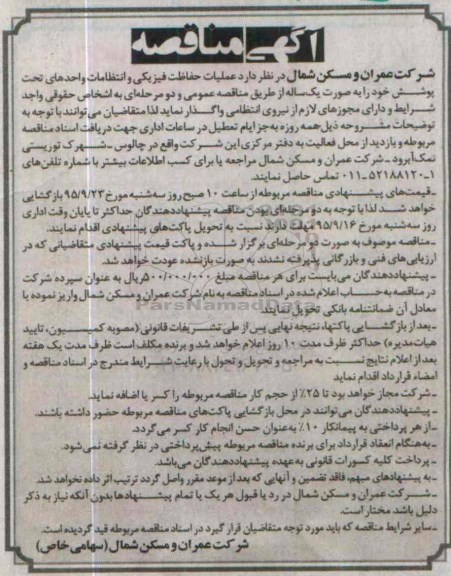 آگهی مناقصه
شرکت عمران و مسکن شمال در نظر دارد عملیات حفاظت فیزیکی و انتظامات واحدهای تحت
پوشش خود را به صورت یکساله از طریق مناقصه عمومی و دو مرحله‌ای به اشخاص حقوقی واجد
شرایط و دارای مجوزهای لازم از نیروی انتظامی واگذار نماید لذا متقاضیان می‌توانند با توجه به
توضیحات مشروحه ذیل همه روزه به‌جز ایام تعطیل در ساعات اداری جهت دریافت اسناد مناقصه
مربوطه و بازدید از محل فعالیت به دفتر مرکزی این شرکت واقع در چالوس ـ شهرک توریستی
نمک‌آبرود ـ شرکت عمران و مسکن شمال مراجعه یا برای کسب اطلاعات بیشتر با شماره تلفن‌های
۱ـ۵۲۱۸۸۱۲۰ـ۰۱۱ تماس حاصل نمایند.
ـ قیمت‌های پیشنهادی مناقصه مربوطه از ساعت ۱۰ صبح روز سه‌شنبه مورخ ۹۵/۹/۲۳ بازگشایی
خواهد شد لذا با توجه به دو مرحله‌ای بودن مناقصه پیشنهاددهندگان حداکثر تا پایان وقت اداری
روز سه‌شنبه مورخ ۹۵/۹/۱۶ مهلت دارند نسبت به تحویل پاکت‌های پیشنهادی اقدام نمایند.
ـ مناقصه موضوف به صورت دو مرحله‌ای برگزار شده و پاکت قیمت پیشنهادی متقاضیانی که در
ارزیابی‌های فنی و بازرگانی پذیرفته نشدند به صورت بازنشده عودت خواهد شد.
ـ پیشنهاددهندگان می‌بایست برای هر مناقصه مبلغ ۵۰۰/۰۰۰/۰۰۰ ریال به عنوان سپرده شرکت
در مناقصه به حساب اعلام شده در اسناد مناقصه به نام شرکت عمران و مسکن شمال واریز نموده یا
معادل آن ضمانتنامه بانکی تحویل نمایند.
ParsNamadData
ـ بعد از بازگشایی پاکتها، نتیجه نهایی پس از طی تشریفات قانونی (مصوبه کمیسیون، تایید
هیات‌مدیره) حداکثر ظرف مدت ۱۰ روز اعلام خواهد شد و برنده مکلف است ظرف مدت یک هفته
بعد از اعلام نتایج نسبت به مراجعه و تحویل و تحول با رعایت شرایط مندرج در اسناد مناقصه و
امضاء قرارداد اقدام نماید
ـ شرکت مجاز خواهد بود تا ۲۵٪ از حجم کار مناقصه مربوطه را کسر یا اضافه نماید.
ـ پیشنهاددهندگان می‌توانند در محل بازگشایی پاکت‌های مناقصه مربوطه حضور داشته باشند.
ـ از هر پرداختی به پیمانکار ۱۰٪ به‌عنوان حسن انجام کار کسر می‌گردد.
ـ به‌هنگام انعقاد قرارداد برای برنده مناقصه مربوطه پیش‌پرداختی در نظر گرفته نمی‌شود.
ـ پرداخت کلیه کسورات قانونی به‌عهده پیشنهاددهندگان می‌باشد.
ـ به پیشنهادهای مبهم، فاقد تضمین و آنهایی که بعد از موعد مقرر واصل گردد ترتیب اثر داده نخواهد شد.
ـ شرکت عمران و مسکن شمال در رد یا قبول هر یک یا تمام پیشنهادها بدون آنکه نیاز به ذکر
دلیل باشد مختار است.
ـ سایر شرایط مناقصه که باید مورد توجه متقاضیان قرار گیرد در اسناد مناقصه مربوطه قید گردیده است.
شرکت عمران و مسکن شمال (سهامی خاص)